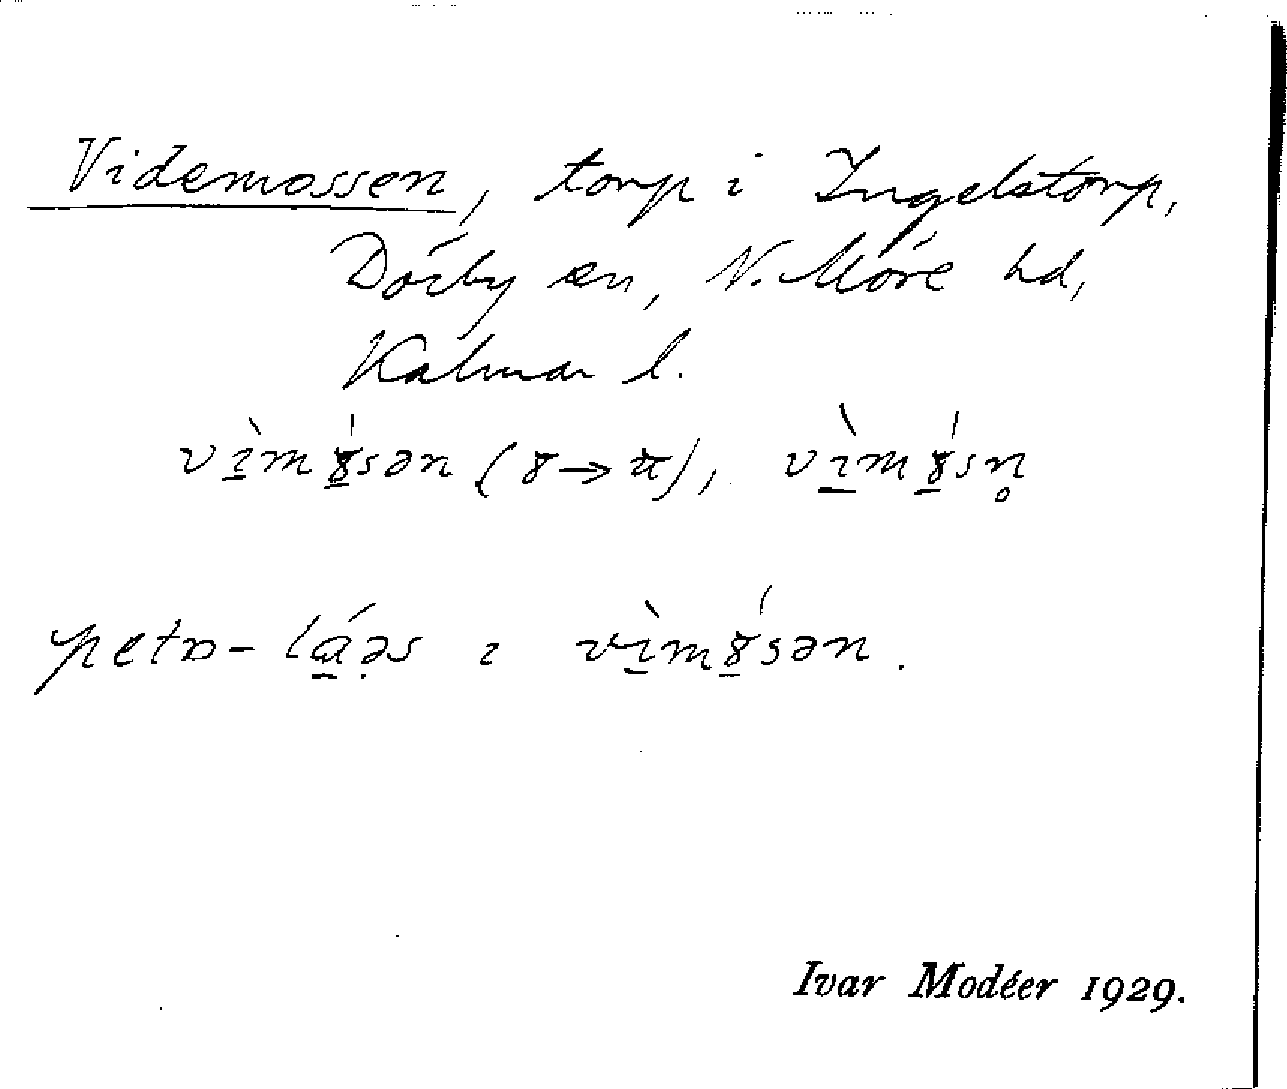 Videmossen, torp i Ingelstorp,
Dörby sn, N. Möre hd,
Kalmar l.
vı̱̀mɤ̱́sən (ɤ→π), vı̱̀mɤ̱́sn̥
petɒ-lá̱ə̣s ı vı̱̀mɤ̱́sən.
Ivar Modéer 1929.